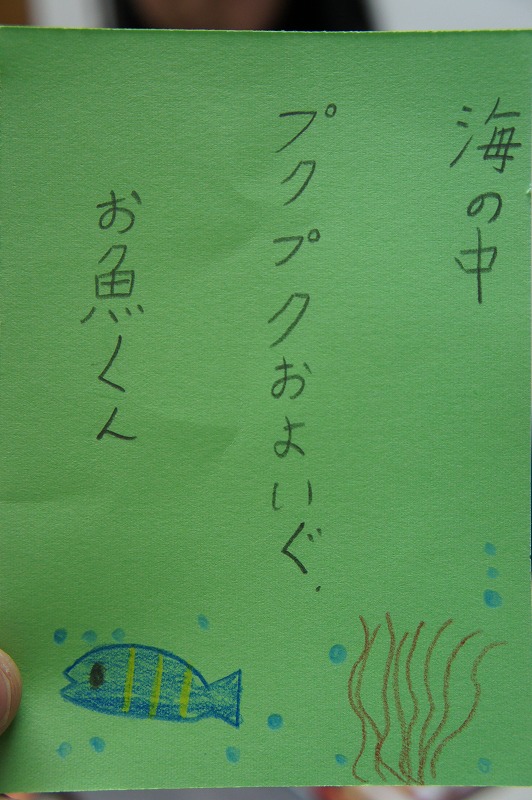 海の中
プクプクおよいぐ.
お魚くん